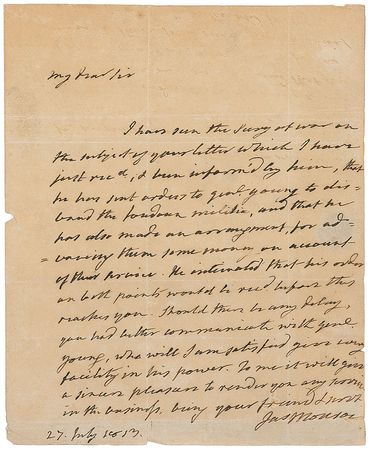 My dear Sir
I have seen the Secy of war on
the subject of your letter which I have
just recd, & been inform'd by him, that
he has sent orders to genl young to dis=
band the loudoun militia, and that he
has also made an arrangment for ad=
=vancing them some money on account
of their service. He estimated that his orders
on both points would be recd before this
reaches you. Should there be any delay,
you had better communicate with genl
young, who will I am satisfied give every
facility in his power. To me it will give
a sincere pleasure to render you any service
in the business. very your friend & servt
Jas Monroe
27. July 1813.